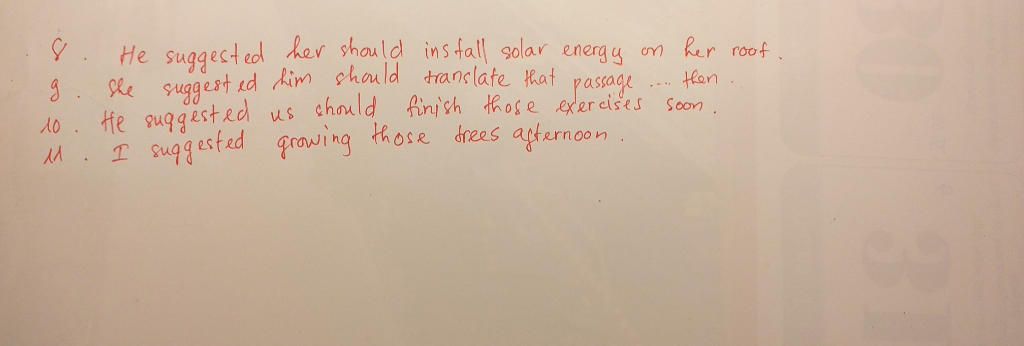 8. He suggested her should install solar energy on her roof.
9. She suggested him should translate that passage .... then.
10. He suggested us should finish those exercises soon.
11. I suggested growing those trees afternoon.
30
31